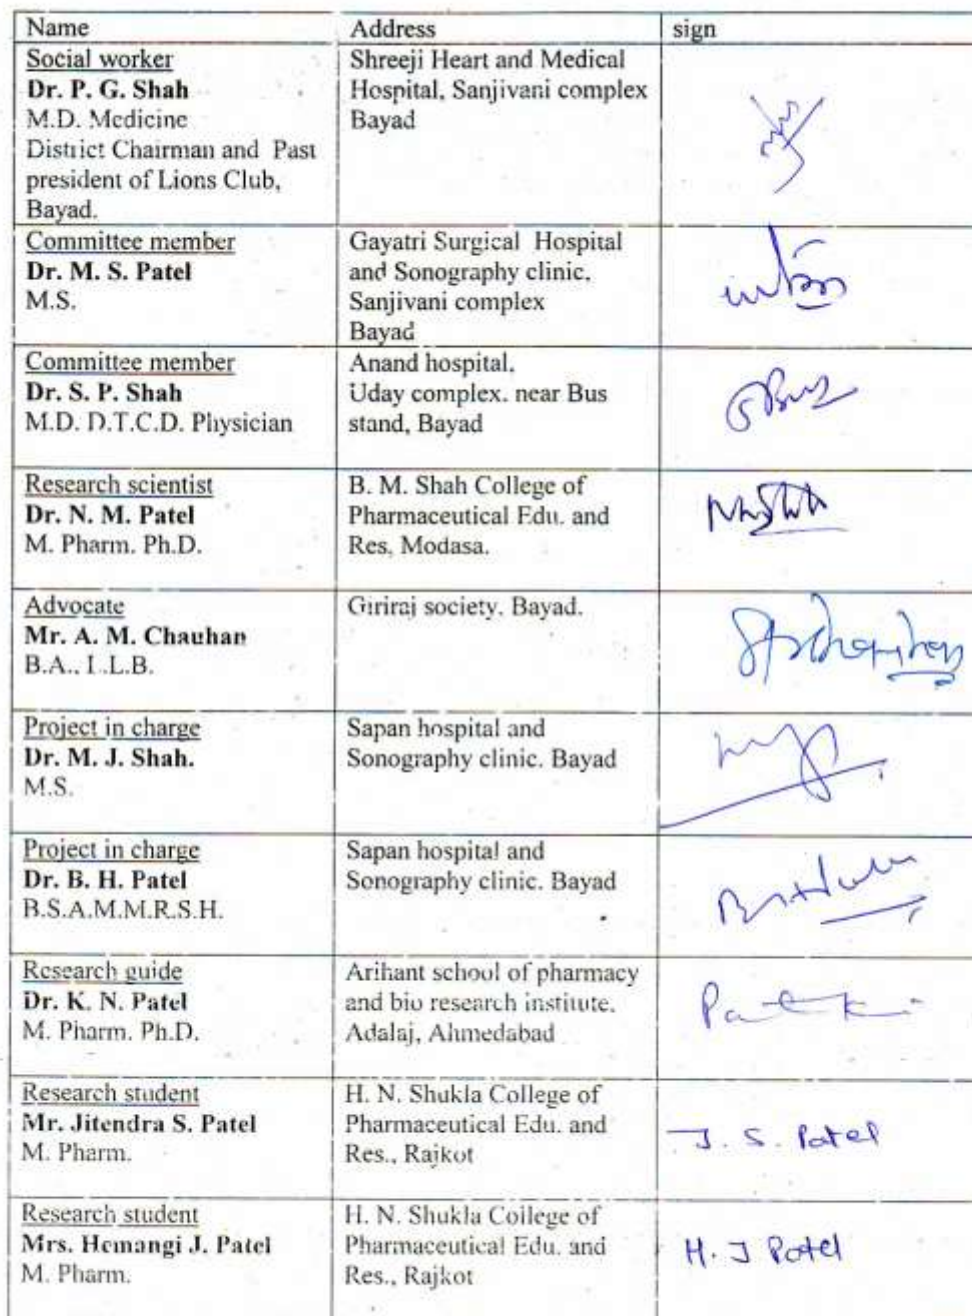 Name Address sign
Social worker
Dr. P. G. Shah
M.D. Medicine
District Chairman and Past
president of Lions Club,
Bayad.
Shreeji Heart and Medical
Hospital, Sanjivani complex
Bayad
Committee member
Dr. M. S. Patel
M.S.
Gayatri Surgical Hospital
and Sonography clinic,
Sanjivani complex
Bayad
Committee member
Dr. S. P. Shah
M.D. D.T.C.D. Physician
Anand hospital,
Uday complex. near Bus
stand, Bayad
Research scientist
Dr. N. M. Patel
M. Pharm. Ph.D.
B. M. Shah College of
Pharmaceutical Edu. and
Res, Modasa.
Advocate
Mr. A. M. Chauhan
B.A., L.L.B.
Giriraj society. Bayad.
Project in charge
Dr. M. J. Shah.
M.S.
Sapan hospital and
Sonography clinic. Bayad
Project in charge
Dr. B. H. Patel
B.S.A.M.M.R.S.H.
Sapan hospital and
Sonography clinic. Bayad
Research guide
Dr. K. N. Patel
M. Pharm. Ph.D.
Arihant school of pharmacy
and bio research institute.
Adalaj, Ahmedabad
Research student
Mr. Jitendra S. Patel
M. Pharm.
H. N. Shukla College of
Pharmaceutical Edu. and
Res., Rajkot
J. S. Patel
Research student
Mrs. Hemangi J. Patel
M. Pharm.
H. N. Shukla College of
Pharmaceutical Edu. and
Res., Rajkot
H. J Patel